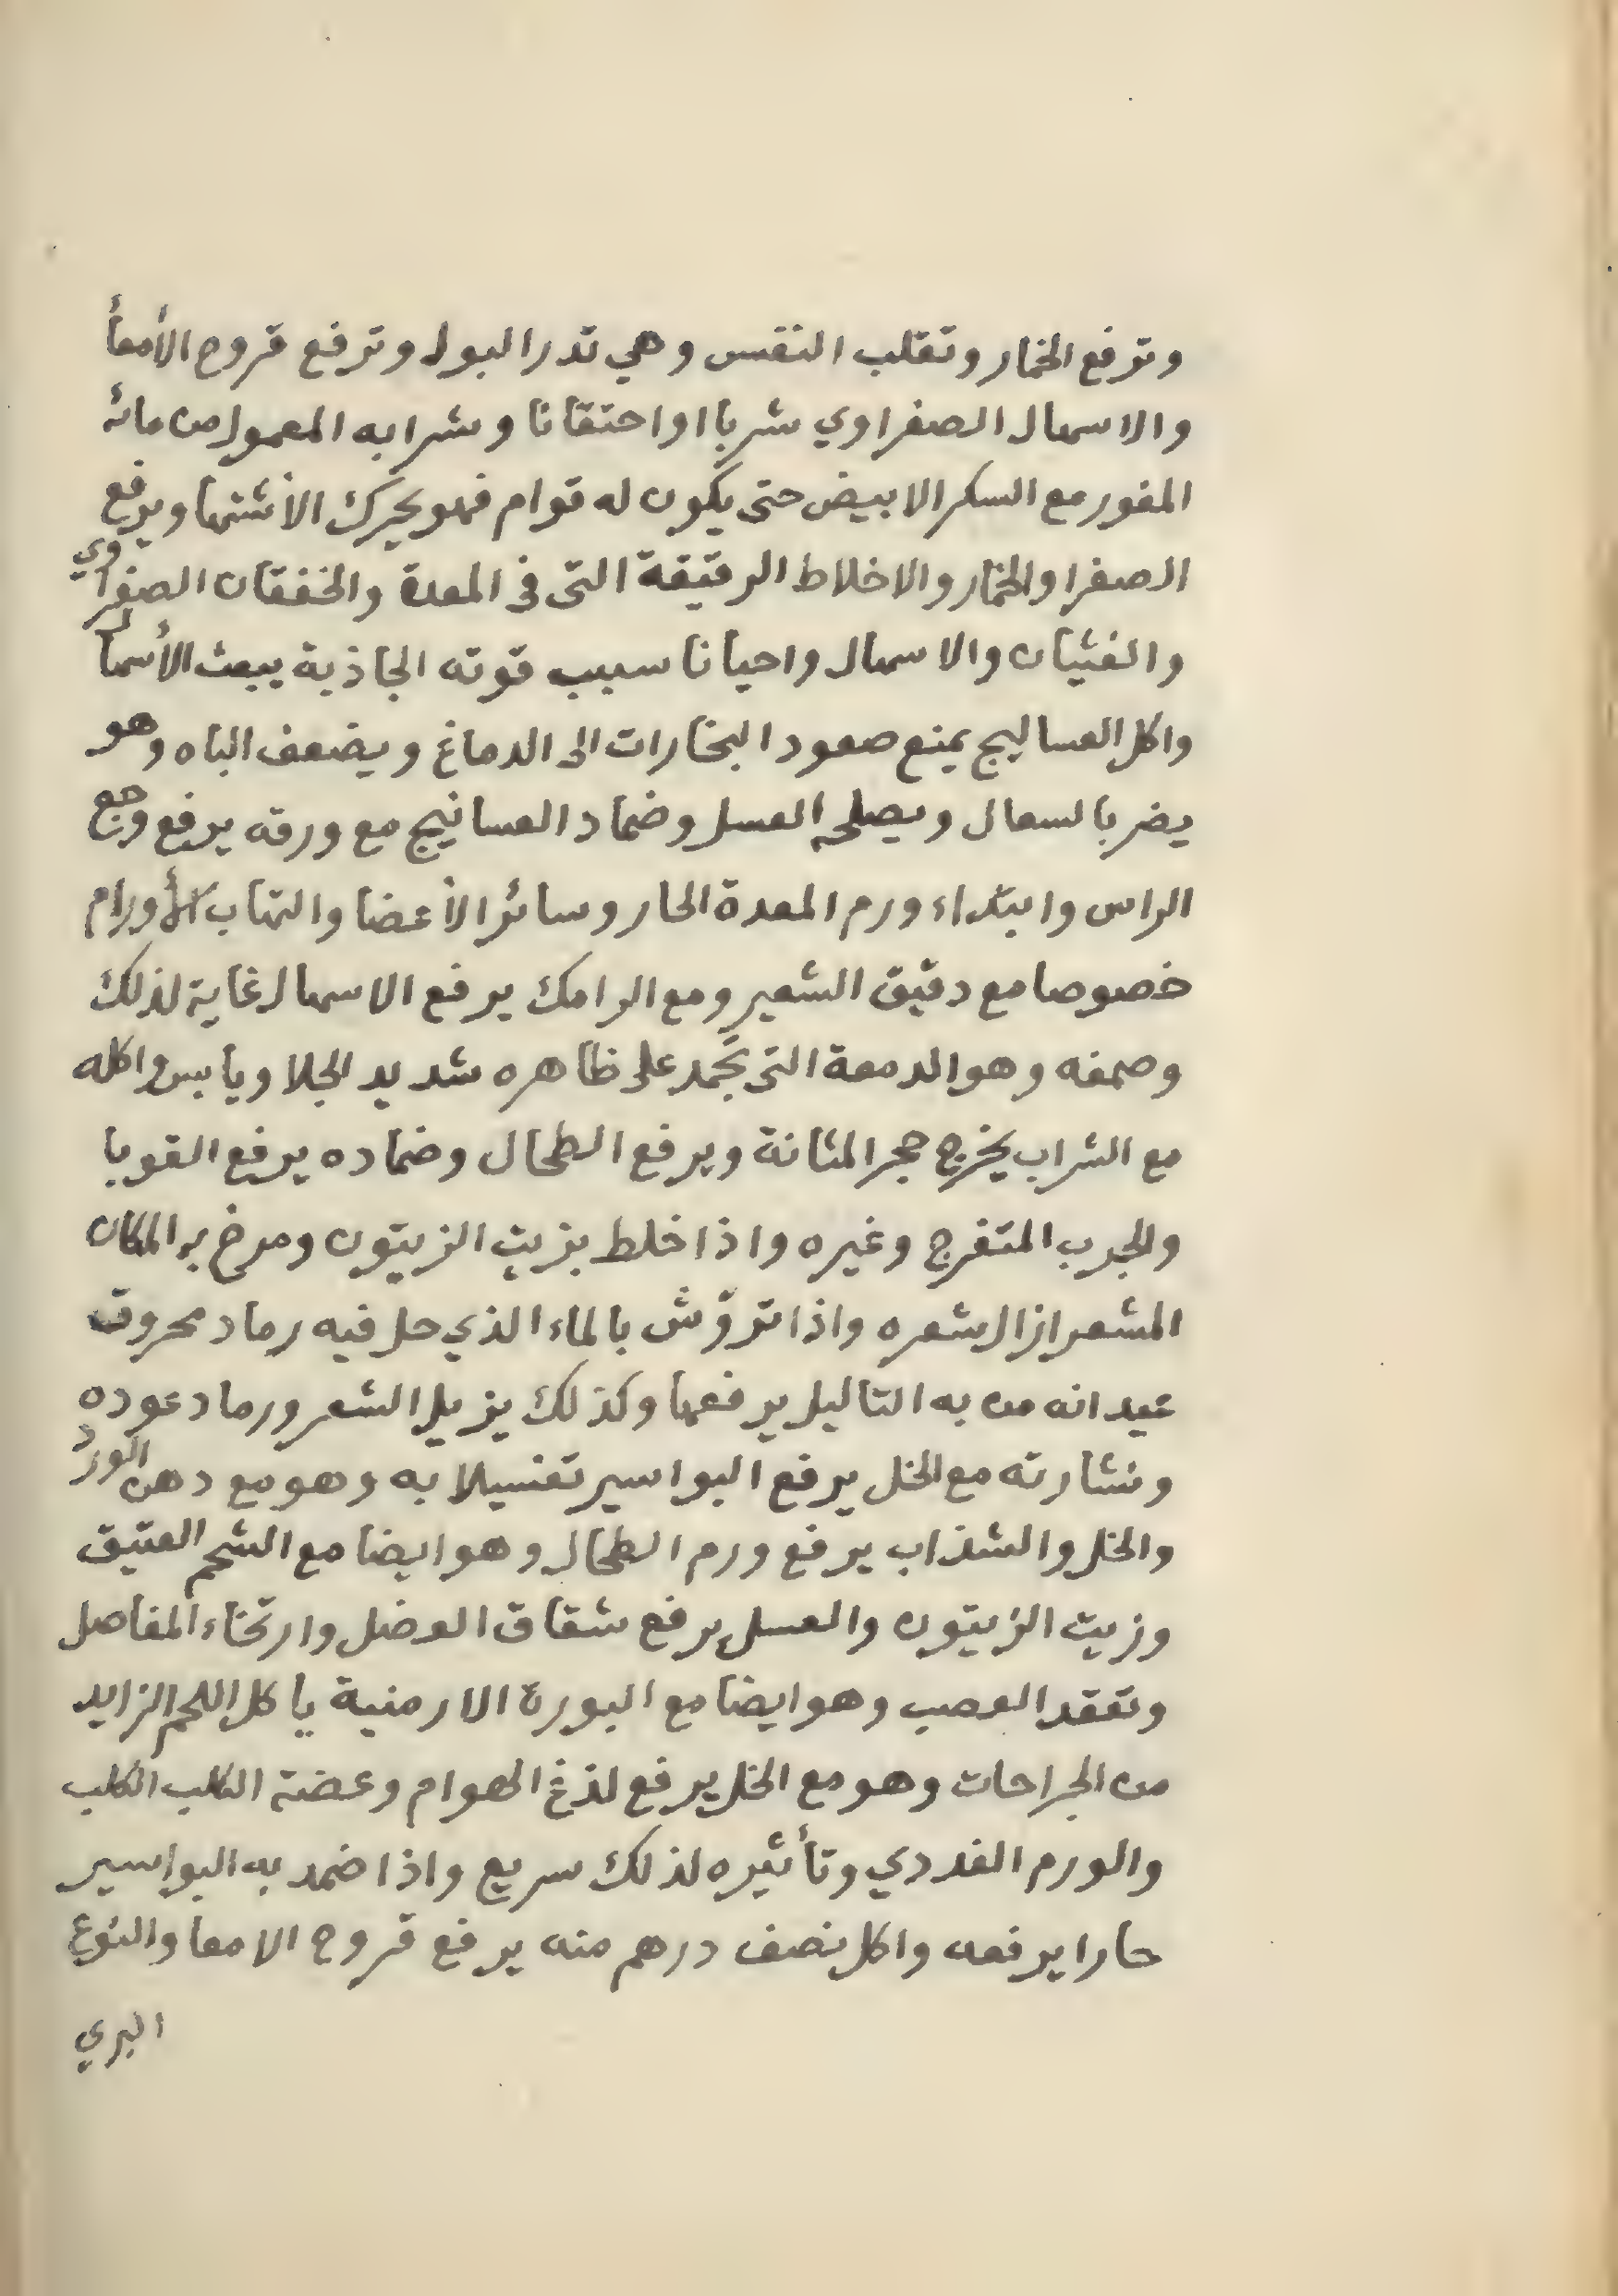 وترفع الخمار وتقلب النفس وهي تدر البول وترفع قروح الأمعأ
والاسهال الصفراوي شربا او احتقانا وشرابه المعمول من مائه
المفور مع السكر الابيض حتى يكون له قوام فهو يحرك الأشتها ويرفع
الصفرا والخمار والاخلاط الرقيقة التى فى المعدة والخفقان الصفراوي
والغثيان والاسهال واحيانا سبب قوته الجاذبة يبعث الأسهال
واكل العساليج يمنع صعود البخارات الى الدماغ ويضعف الباه وهو
يضر بالسعال ويصلحه العسل وضماد العساليج مع ورقه يرفع وجع
الراس وابتداء ورم المعدة الحار وسائر الأعضا والتهاب الأورام
خصوصا مع دقيق الشعير ومع الرامك يرفع الاسهال غاية لذلك
وصمغه وهو الدمعة التى تجمد على ظاهره شديد الجلا ويابس واكله
مع الشراب يخرج حجر المثانة ويرفع الطحال وضماده يرفع القوبا
والجرب المتفرح وغيره واذا خلط بزيت الزيتون ومرخ به المكان
المشعر ازال شعره واذا تروّش بالماء الذي حل فيه رماد محروق
عيدانه من به التاليل يرفعها وكذلك يزيل الشعر ورماد عوده
ونشارته مع الخل يرفع البواسير تغسيلا به وهو مع دهن الورد
والخل والشذاب يرفع ورم الطحال وهو ايضا مع الشحم العتيق
وزيت الزيتون والعسل يرفع شقاق العضل وارتخاء المفاصل
وتعقد العصب وهو ايضا مع البورة الارمنية ياكل اللحم الزايد
من الجراحات وهو مع الخل يرفع لذغ الهوام وعضة الكلب الكلب
والورم الغددي وتأثيره لذلك سريع واذا ضمد به البواسير
حارا يرفعه واكل نصف درهم منه يرفع قروح الامعا والنوع
البري